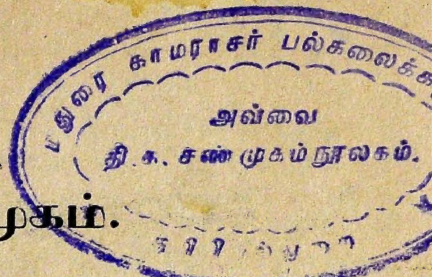 மதுரை காமராசர் பல்கலைக்க
அவ்வை
தி. க. சண்முகம் நூலகம்.
முகம்.